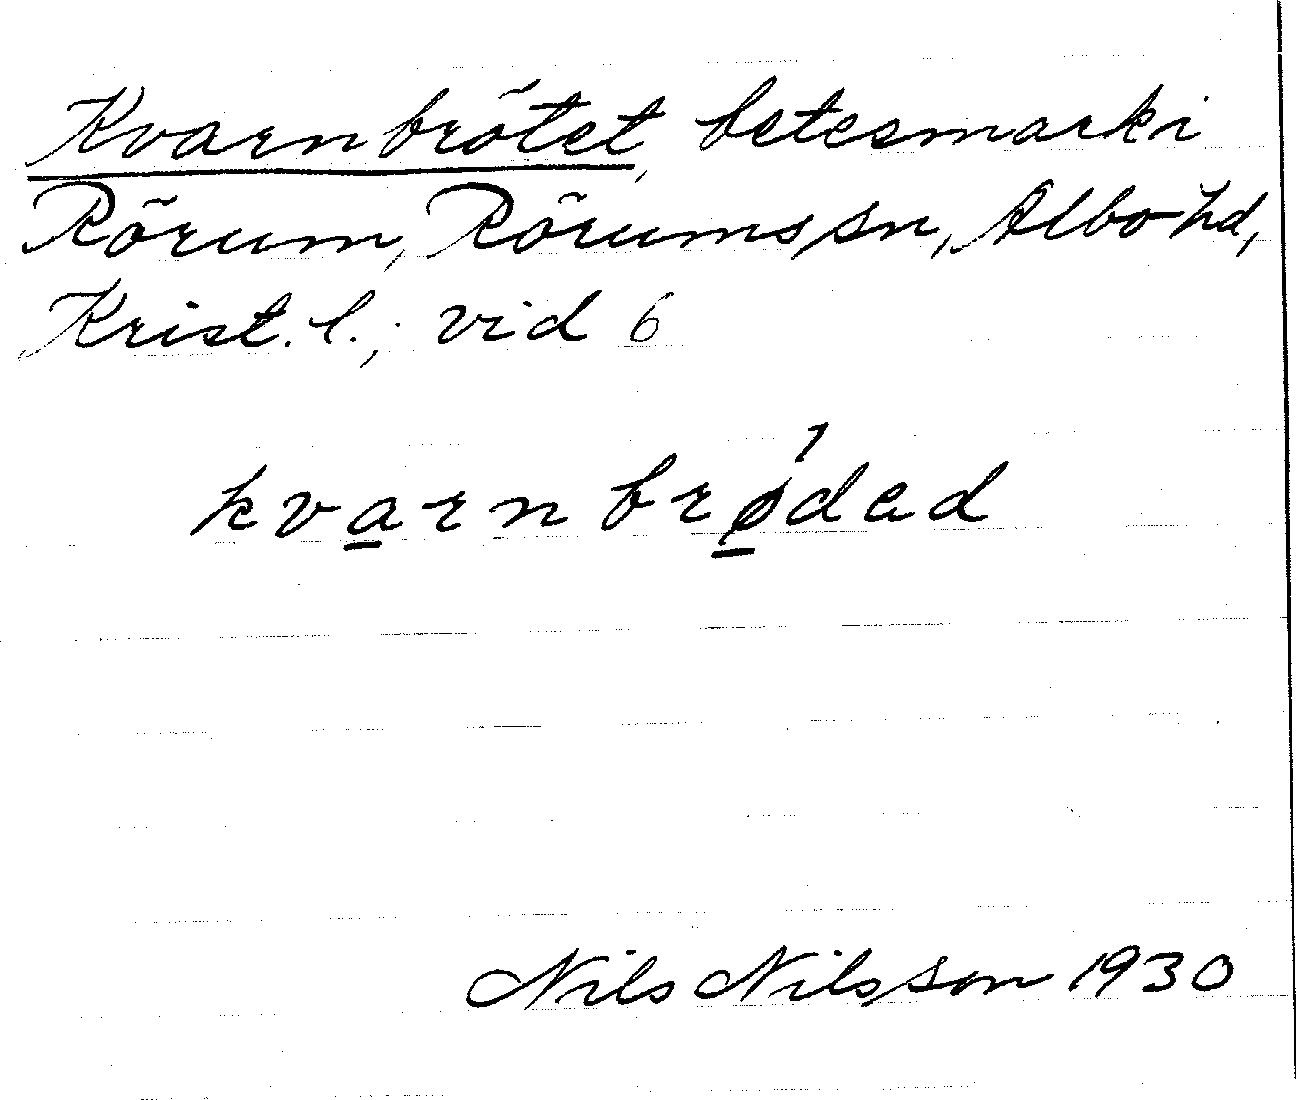 Kvarnbrötet, betesmark i
Rörum, Rörums sn, Albo hd,
Krist. l.; vid 6
kva̲rnbrǿ̲dad
Nils Nilsson 1930